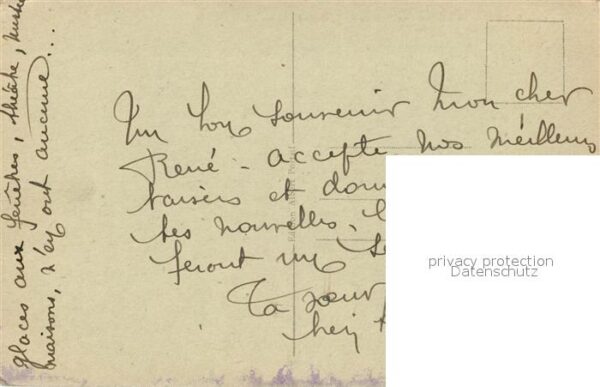 Un bon souvenir mon cher
René - accepte nos meilleurs
baisers et
tes nouvelles.
feront un
Ta sœur
glaces aux fenêtres, théâtre,
maisons, n'ey ont aucune...
privacy protection
Datenschutz